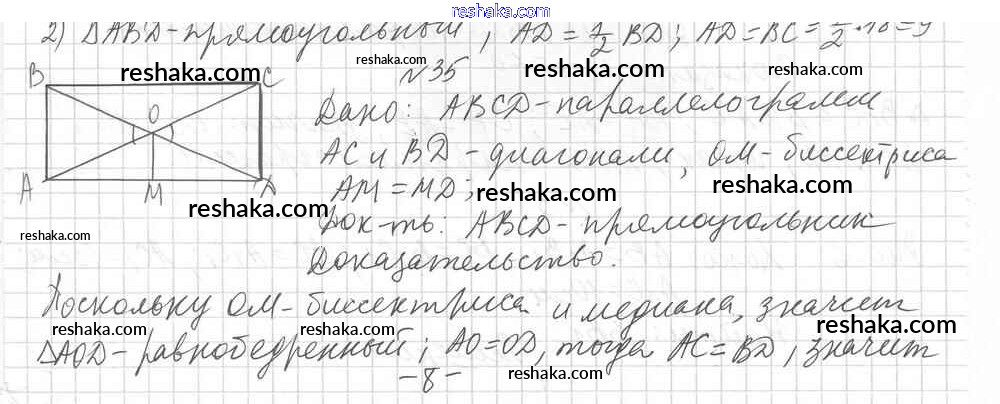 www.reshaka.com
2) ΔABD-прямоугольный, AD = 1/2 BD; AD=BC= 1/2·18=9
reshaka.com
reshaka.com
reshaka.com
№35
B C
O
A M D
Дано: ABCD-параллелограмм
reshaka.com
AC и BD - диагонали, OM-биссектриса
reshaka.com
AM = MD;
reshaka.com
reshaka.com
Док-ть: ABCD-прямоугольник
reshaka.com
reshaka.com
Доказательство.
Поскольку OM-биссектриса и медиана, значит
reshaka.com
reshaka.com
reshaka.com
ΔAOD-равнобедренный; AO=OD, тогда AC=BD, значит
-8-
reshaka.com